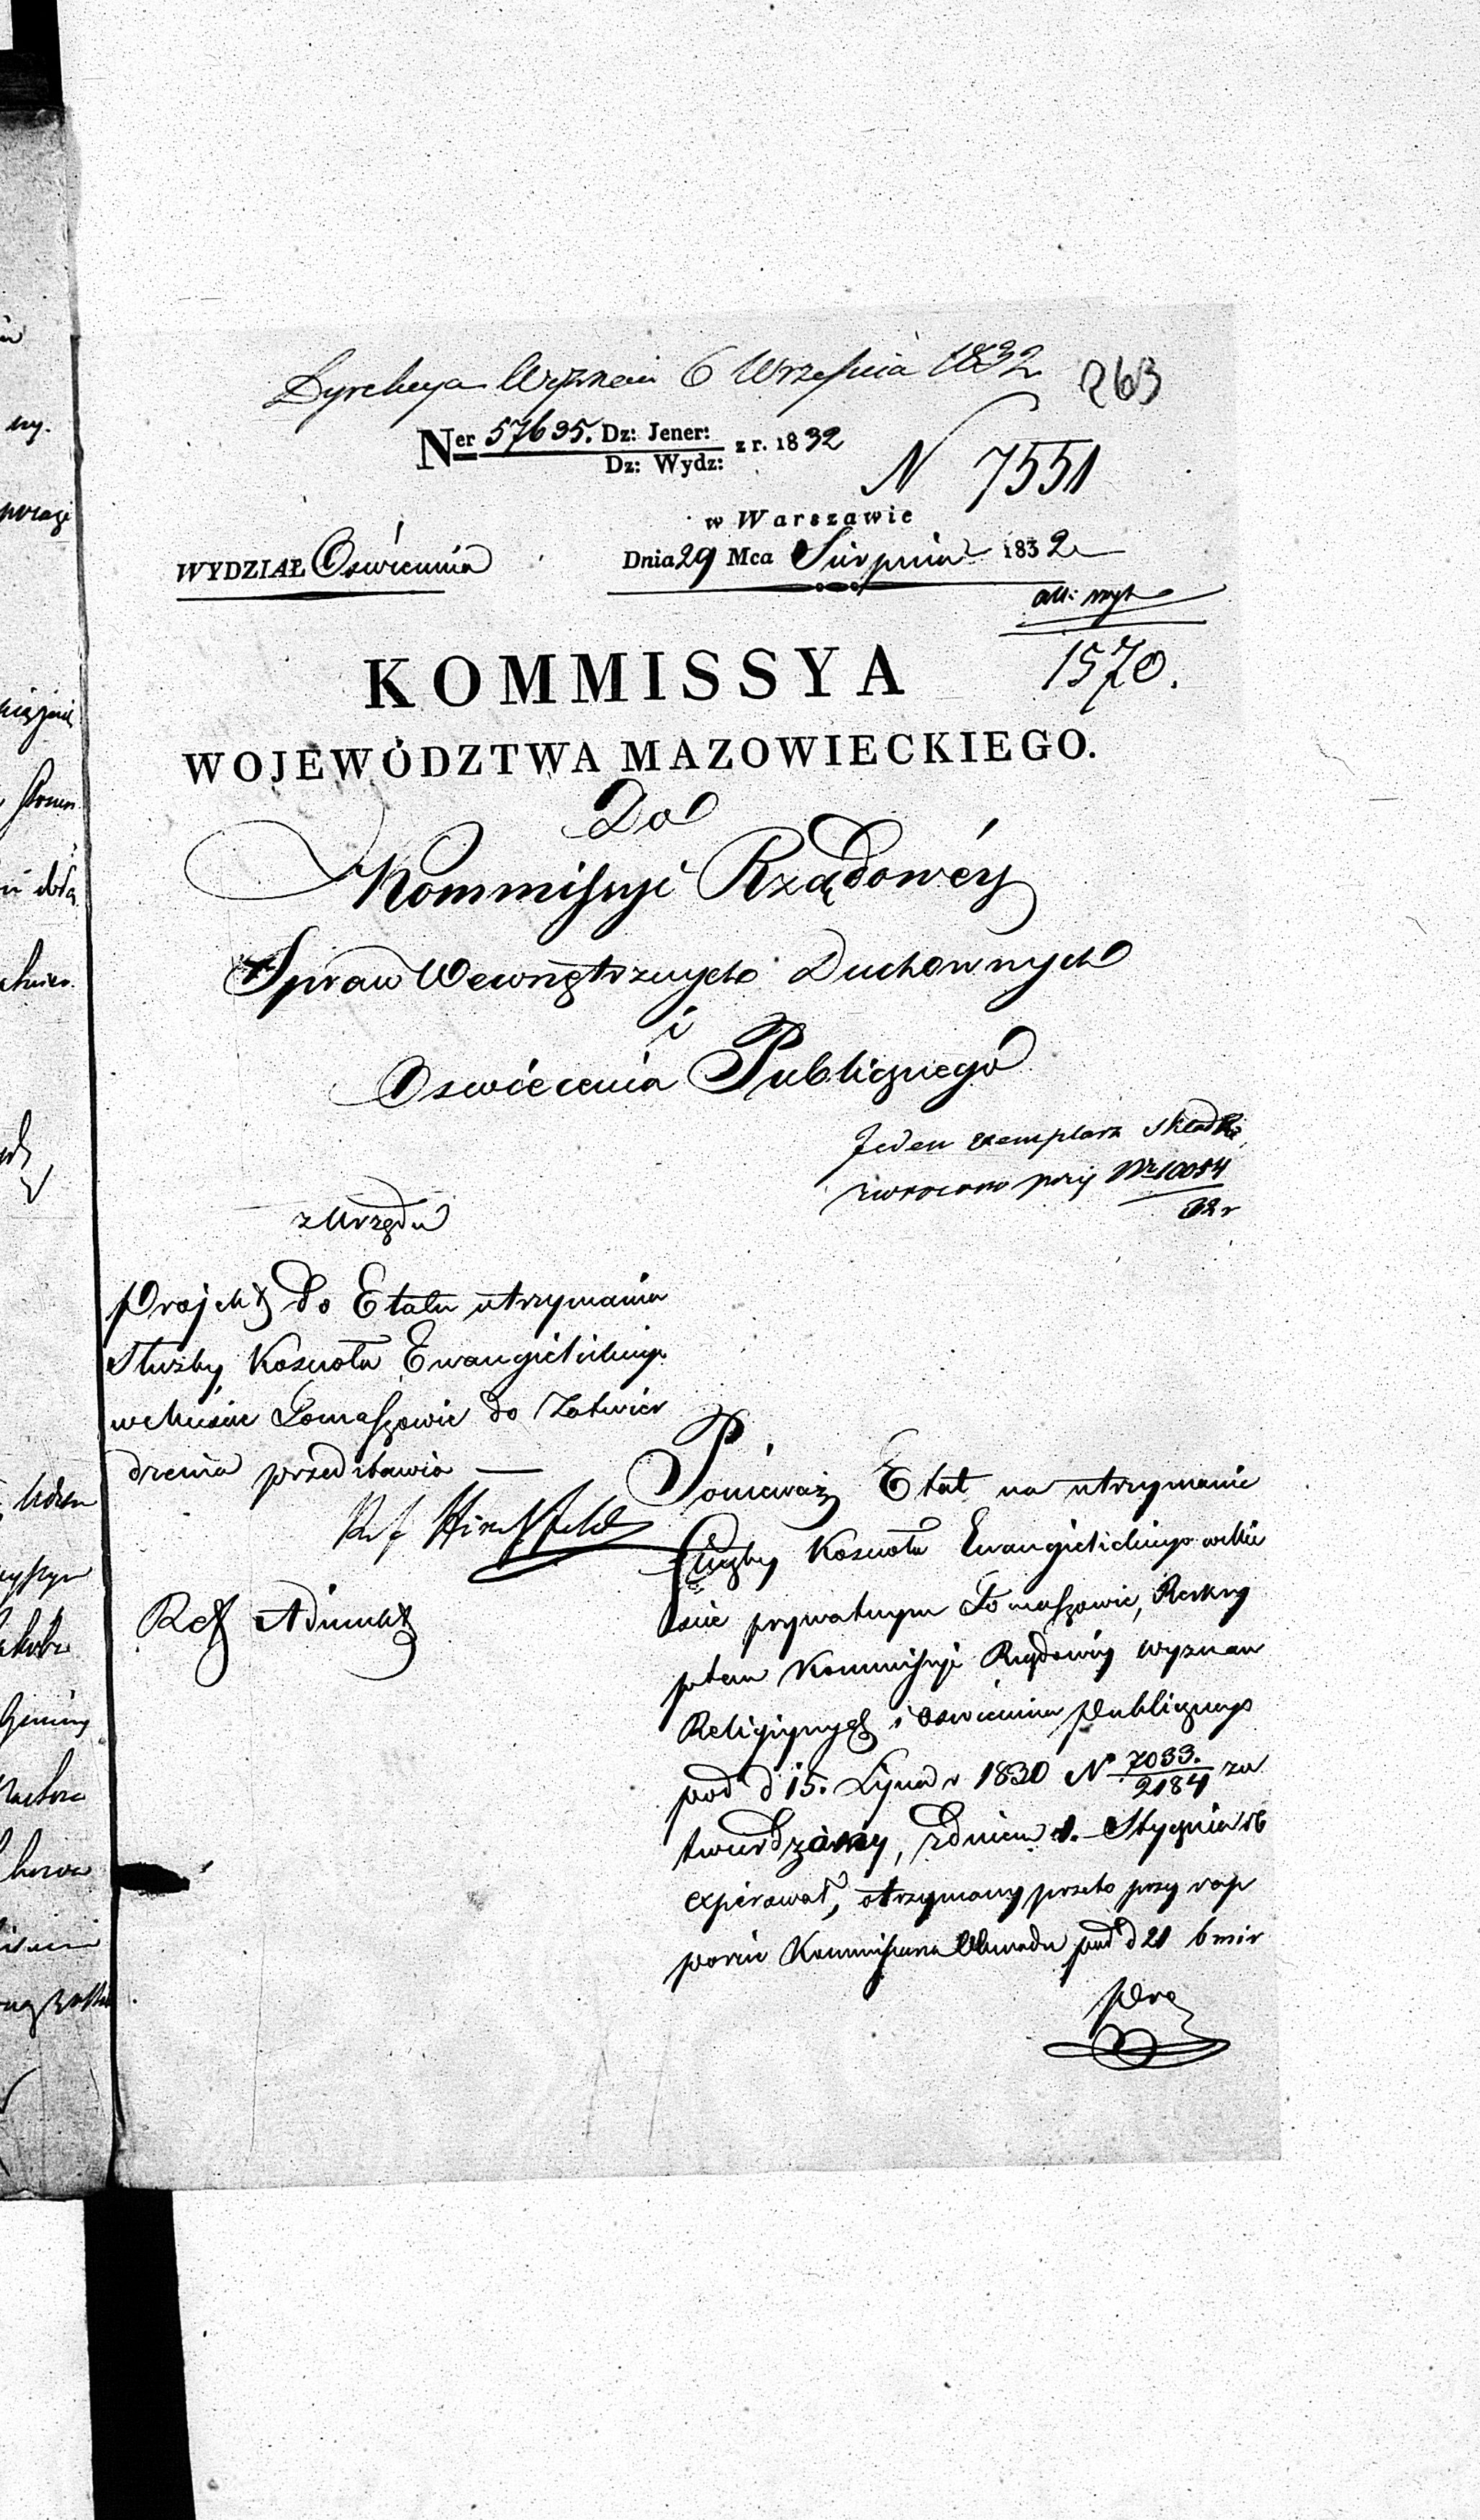 Dyrekcya Wyznań 6 Września 1832
263
Ner 57695. Dz: Jener: z r. 1832
Dz: Wydz:
N 7551
w Warszawie
WYDZIAŁ Oświecenia
Dnia 29 Mca Sierpnia 1832
1570.
KOMMISSYA
WOJEWÓDZTWA MAZOWIECKIEGO.
Do
Kommissyi Rządowéy
Spraw Wewnętrznych Duchownych
i
Oswiecenia Publicznego
Jeden exemplarz składki
zwrocono przy Nr 10054
32 r
z Urzędu
Projekt do Etatu utrzymania
służby Kościoła Ewangielickiego
w Mieście Tomaszowie do Zatwier
dzenia przedstawia —
Ref Hirschfeld
Ref Adiunkt
Ponieważ Etat na utrzymanie
służby Kościoła Ewangielickiego w Mie
ście prywatnym Tomaszowie, Reskry
ptem Kommissyi Rządowéy Wyznań
Religijnych i Oświecenia Publicznego
pod d 15. Lipca r 1830 N 7033./2184 za
twierdzony, z dniem 1. Stycznia rb
expirował, otrzymany przeto przy rap
porcie Kommissarza Obwodu pod d 21 bmir
pro